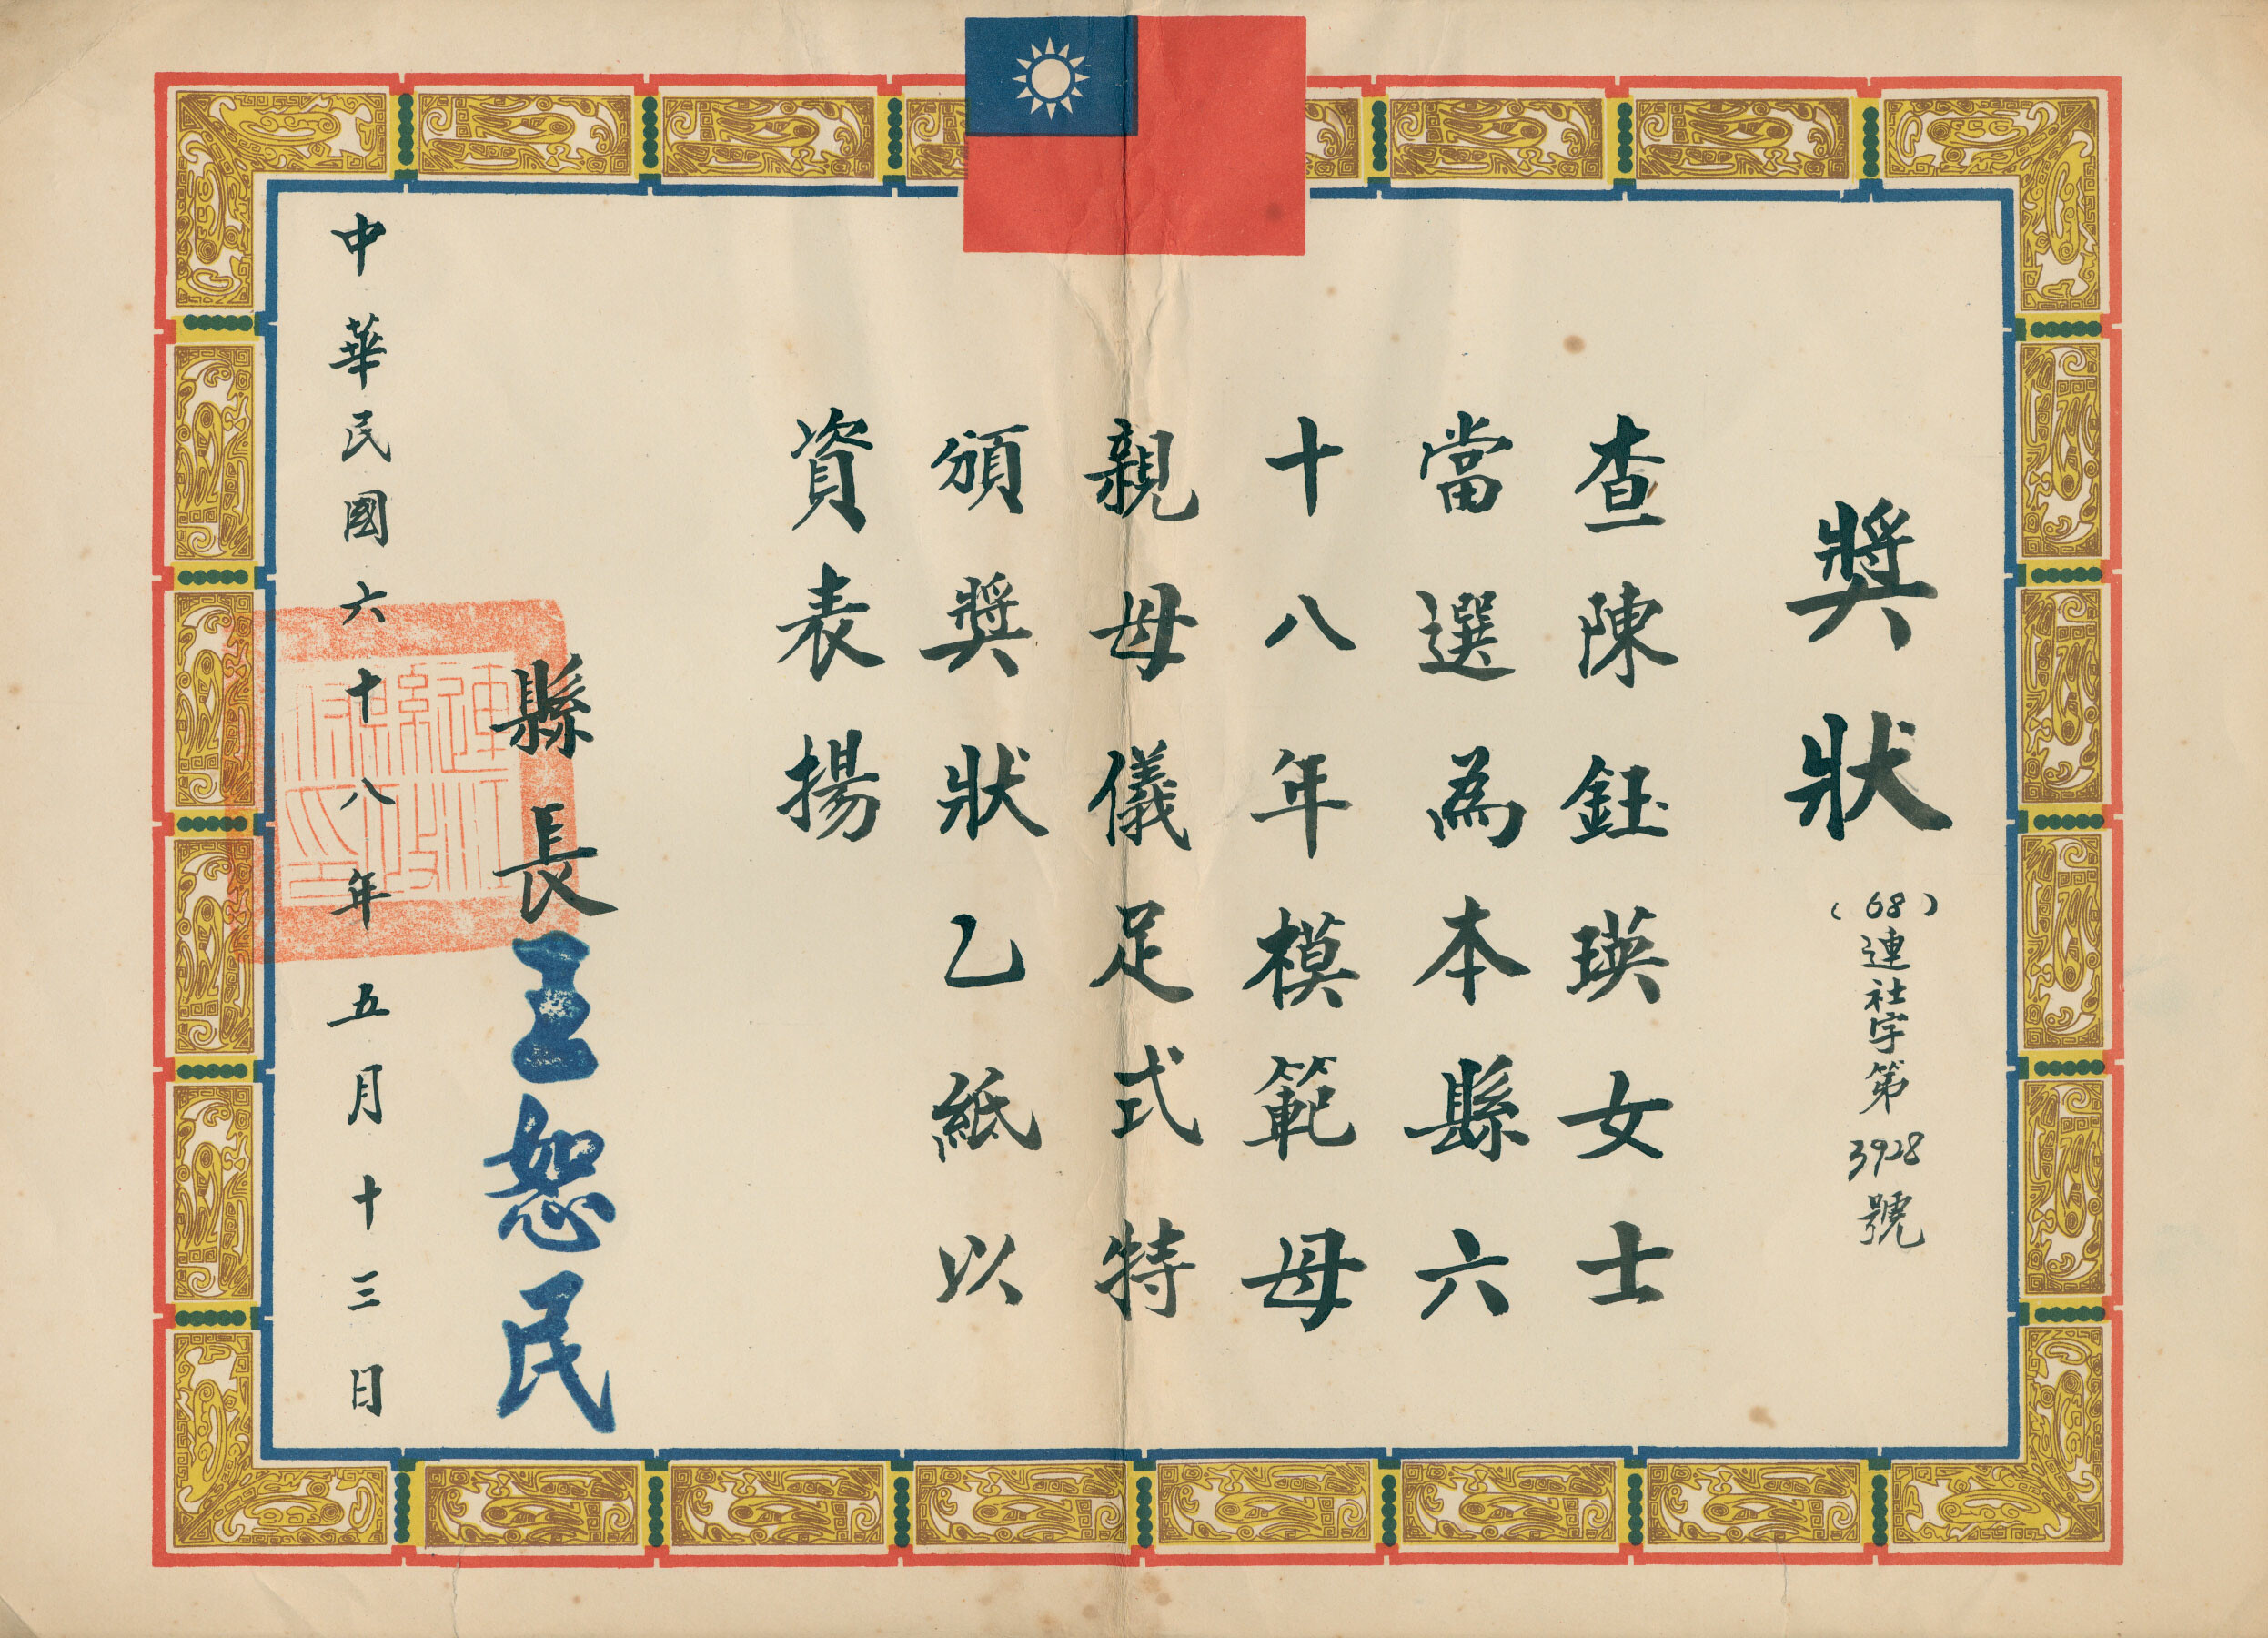 獎狀
（68）連社字第3928號
查陳鈺瑛女士
當選為本縣六
十八年模範母
親母儀足式特
頒獎狀乙紙以
資表揚
縣長王恕民
中華民國六十八年五月十三日
連江縣政府印